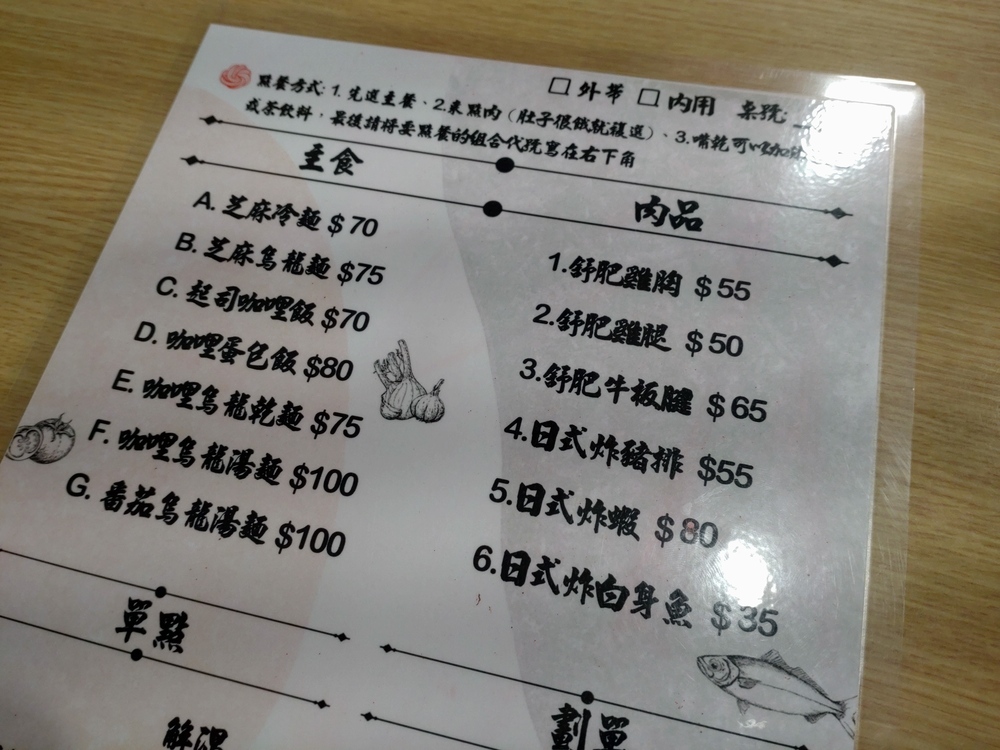 □ 外帶 □ 內用 桌號:
點餐方式: 1. 先選主餐、2.來點肉（肚子很餓就複選）、3.嘴乾可以加
或茶飲料，最後請將要點餐的組合代號寫在右下角
主食
A. 芝麻冷麵 $70
B. 芝麻烏龍麵 $75
C. 起司咖哩飯 $70
D. 咖哩蛋包飯 $80
E. 咖哩烏龍乾麵 $75
F. 咖哩烏龍湯麵 $100
G. 番茄烏龍湯麵 $100
肉品
1.舒肥雞胸 $55
2.舒肥雞腿 $50
3.舒肥牛板腱 $65
4.日式炸豬排 $55
5.日式炸蝦 $80
6.日式炸白身魚 $35
單點
解
劃單